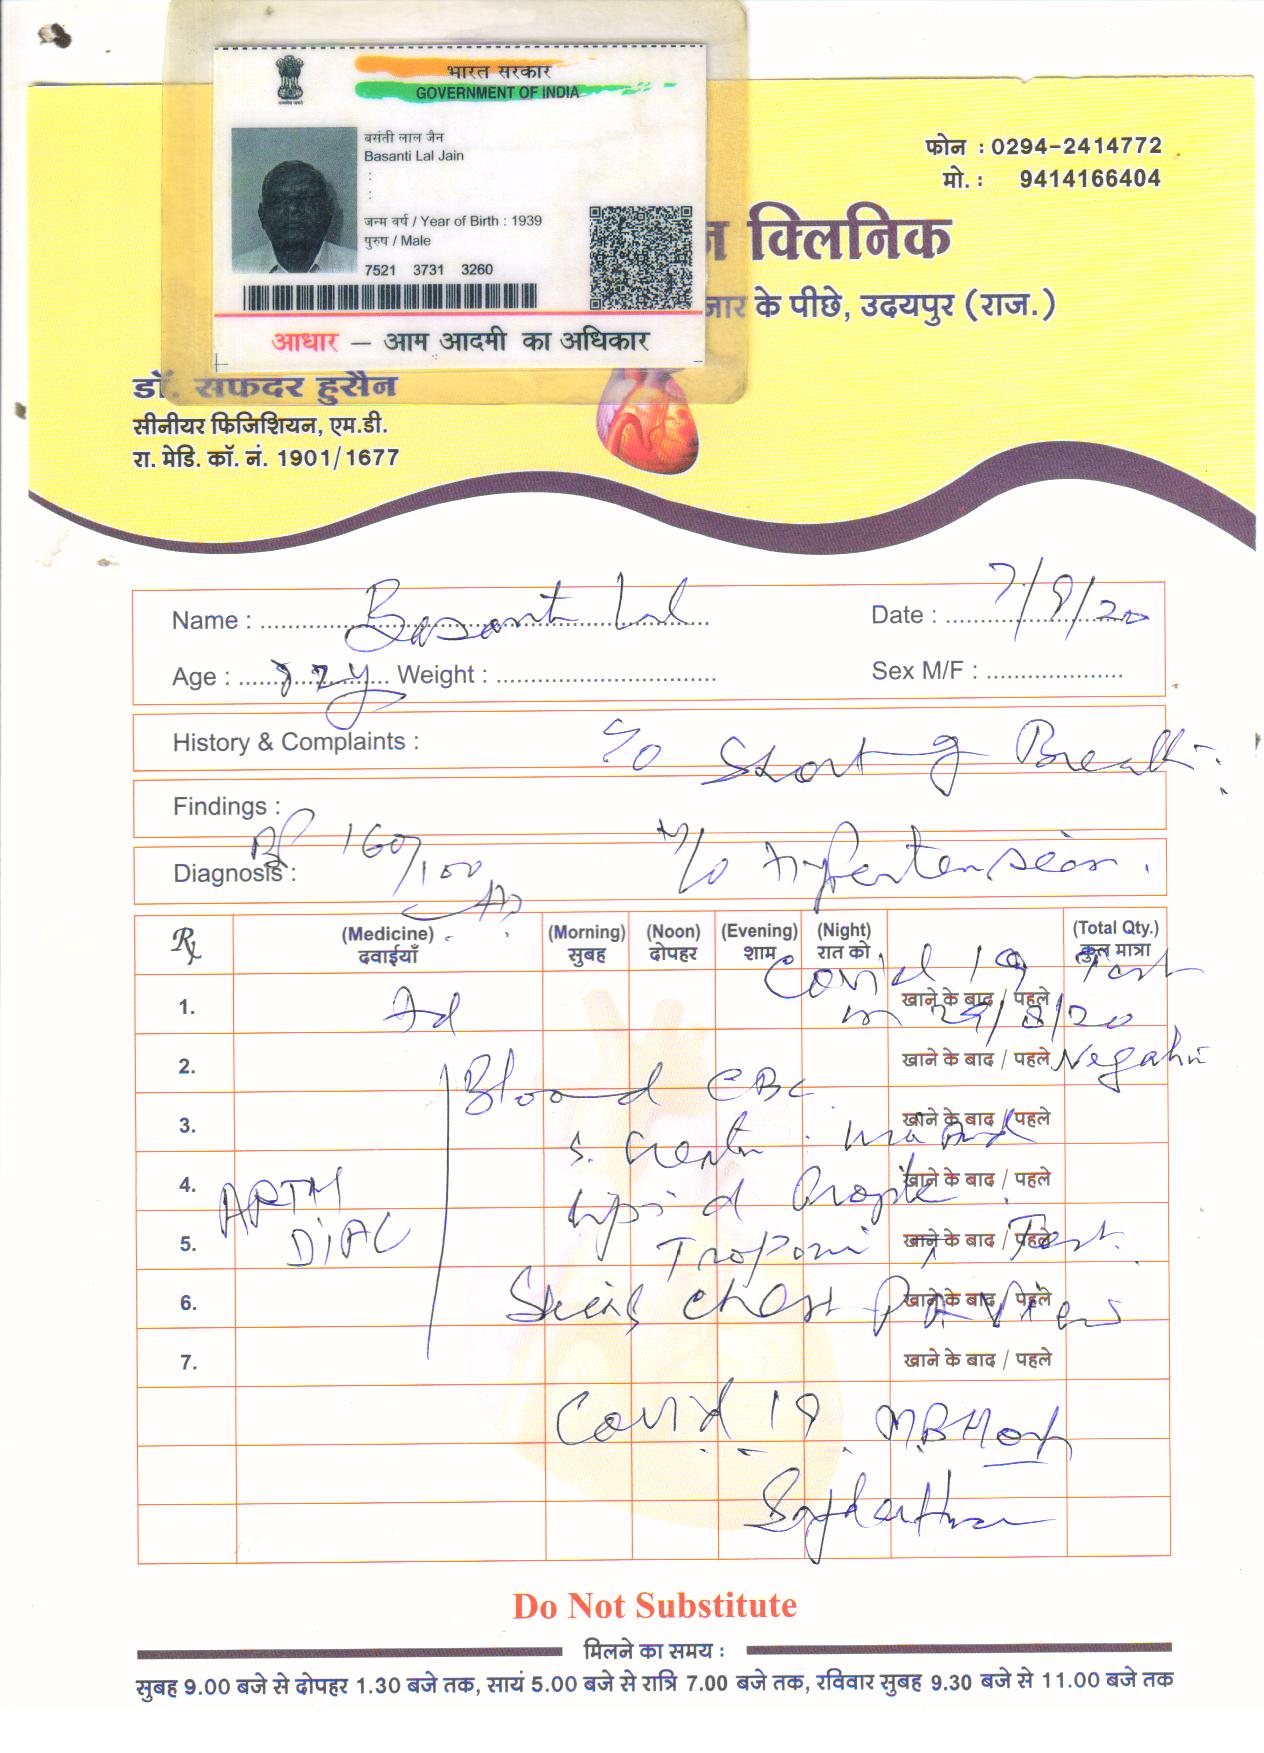 भारत सरकार
GOVERNMENT OF INDIA
बसंती लाल जैन
Basanti Lal Jain
:
:
जन्म वर्ष / Year of Birth : 1939
पुरुष / Male
7521 3731 3260
आधार – आम आदमी का अधिकार
फोन : 0294-2414772
मो. : 9414166404
क्लिनिक
के पीछे, उदयपुर (राज.)
डॉ. सफदर हुसैन
सीनीयर फिजिशियन, एम.डी.
रा. मेडि. कॉ. नं. 1901/1677
Name : Basant Lal Date : 7/9/20
Age : 82y Weight : Sex M/F :
History & Complaints : C/O Short of Breath
Findings :
BP 160/100 H/O Hypertension.
Diagnosis :
Rx (Medicine) (Morning) (Noon) (Evening) (Night) (Total Qty.)
दवाईयाँ सुबह दोपहर शाम रात को कुल मात्रा
Covid 19 Test
1. Ad खाने के बाद / पहले
on 29/8/20
2. खाने के बाद / पहले Negative
Blood CBC
3. खाने के बाद / पहले
S. Creatin
4. खाने के बाद / पहले
Lipid Profile
5. खाने के बाद / पहले
Troponin T Test.
6. खाने के बाद / पहले
Chest PA View
7. खाने के बाद / पहले
Covid 19 MBH
Do Not Substitute
मिलने का समय :
सुबह 9.00 बजे से दोपहर 1.30 बजे तक, सायं 5.00 बजे से रात्रि 7.00 बजे तक, रविवार सुबह 9.30 बजे से 11.00 बजे तक